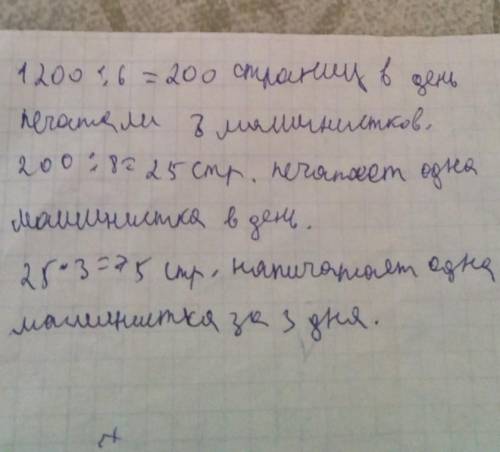 1200 : 6 = 200 страниц в день
печатали 8 машинистков.
200 : 8 = 25 стр. печатает одна
машинистка в день.
25 · 3 = 75 стр. напичатает одна
машинистка за 3 дня.